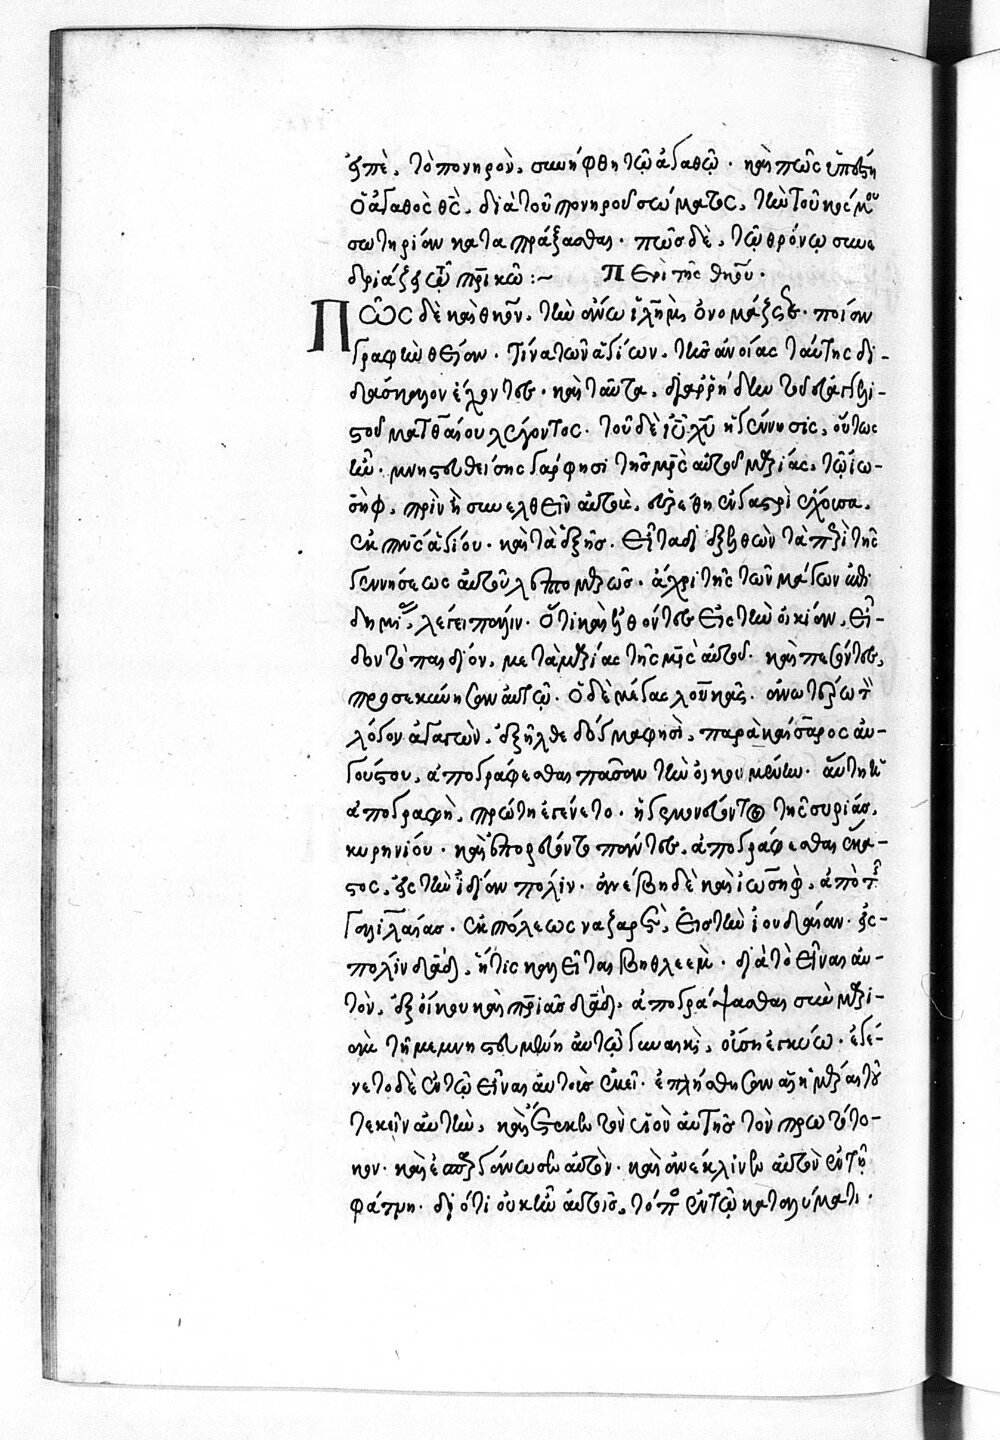 ἐπεὶ, τὸ πονηρὸν, συνήφθη τῷ ἀγαθῷ· καὶ πῶς
ὁ ἀγαθὸς θς, διὰ τοῦ πονηροῦ σώματος, τὴν τοῦ κόσμου
σωτηρίαν καταπράξασθαι· πῶς δὲ, τῷ θρόνῳ συνε
δριάζει τῷ πρικῷ :~ Περὶ τῆς θκου·
Πῶς δὲ καὶ θκον, τὴν ὀνομάζετε· ποίαν
γραφὴν θείαν· τίνα τῶν ἁγίων, τῆς ἀνοίας ταύτης δι-
δάσκαλον ἔχοντες· καὶ ταῦτα, διαρρήδην τοῦ εὐαγγελι-
στοῦ ματθαίου λέγοντος· τοῦ δὲ ιυ χυ ἡ γέννησις, οὕτως
ἦν· μνηστευθείσης γάρ φησι τῆς μρς αὐτοῦ μαρίας, τῷ ἰω-
σὴφ, πρὶν ἢ συνελθεῖν αὐτοὺς, εὑρέθη ἐν γαστρὶ ἔχουσα,
ἐκ πνς ἁγίου· καὶ τὰ ἑξῆς· εἶτα διεξελθὼν τὰ περὶ τῆς
γεννήσεως αὐτοῦ λεπτομερῶς· ἄχρι τῆς τῶν μάγων ἐπι
δημίας, λέγει πάλιν· ὅτι καὶ ἐλθόντες εἰς τὴν οἰκίαν, εἶ-
δον τὸ παιδίον, μετὰ μαρίας τῆς μρς αὐτοῦ· καὶ πεσόντες,
προσεκύνησαν αὐτῷ· ὁ δὲ μέγας λουκᾶς,
λόγον ἀγαγὼν, ἐξῆλθε δόγμα φησὶ, παρὰ καίσαρος αὐ-
γούστου, ἀπογράφεσθαι πᾶσαν τὴν οἰκουμένην· αὕτη ἡ
ἀπογραφὴ, πρώτη ἐγένετο· ἡγεμονεύοντος τῆς συρίας,
κυρηνίου· καὶ ἐπορεύοντο πάντες, ἀπογράφεσθαι ἕκα-
στος, εἰς τὴν ἰδίαν πόλιν· ἀνέβη δὲ καὶ ἰωσὴφ, ἀπὸ τῆς
γαλιλαίας· ἐκ πόλεως ναζαρὲτ, εἰς τὴν ἰουδαίαν· εἰς
πόλιν δαδ, ἥτις καλεῖται βηθλεὲμ· διὰ τὸ εἶναι αὐ-
τὸν, ἐξ οἴκου καὶ πριᾶς δαδ, ἀπογράψασθαι σὺν μαρι-
ὰμ τῇ μεμνηστευμένῃ αὐτῷ γυναικὶ, οὔσῃ ἐγκύῳ· ἐγέ-
νετο δὲ ἐν τῷ εἶναι αὐτοὺς ἐκεῖ· ἐπλήσθησαν αἱ ἡμέραι τοῦ
τεκεῖν αὐτὴν, καὶ ἔτεκε τὸν υἱὸν αὐτῆς τὸν πρωτότο-
κον· καὶ ἐσπαργάνωσεν αὐτὸν· καὶ ἀνέκλινεν αὐτὸν ἐν τῇ
φάτνῃ· διότι οὐκ ἦν αὐτοῖς, τόπος ἐν τῷ καταλύματι·